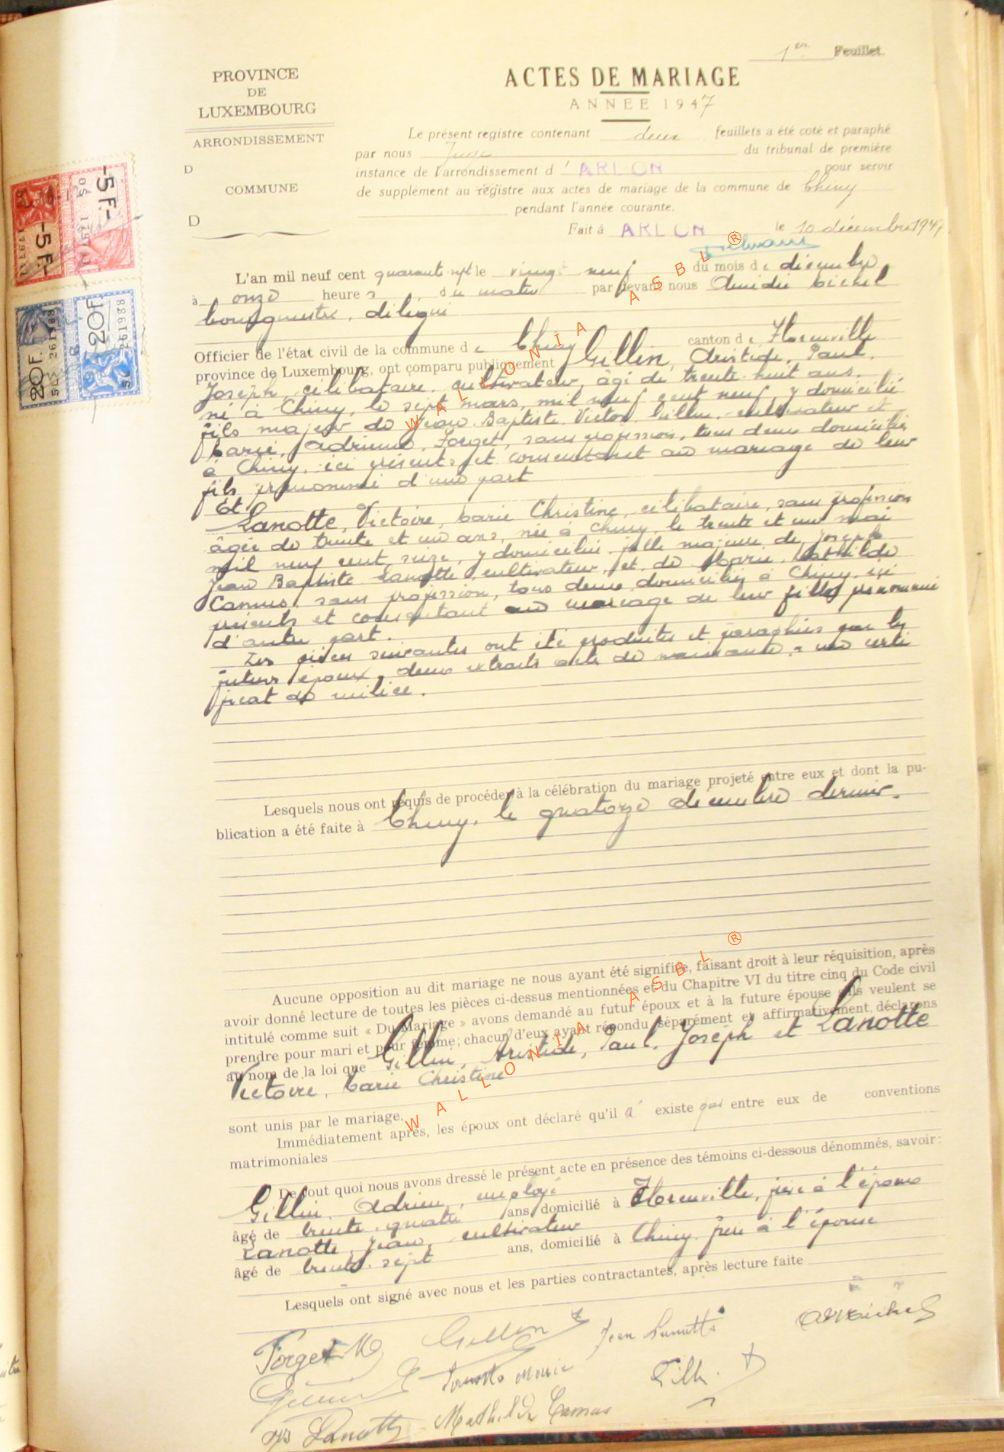 1er Feuillet
PROVINCE
DE
LUXEMBOURG
ARRONDISSEMENT
D
COMMUNE
D
ACTES DE MARIAGE
ANNÉE 1947
Le présent registre contenant deux feuillets a été coté et paraphé
par nous Juge du tribunal de première
instance de l'arrondissement d' ARLON pour servir
de supplément au régistre aux actes de mariage de la commune de Chiny
pendant l'année courante.
Fait à ARLON le 10 décembre 1947
5 F.
5 F.
20 F.
20 F.
261988
L'an mil neuf cent quarante sept le vingt neuf du mois de décembre
à onze heures du matin par devant nous
bourgmestre, délégué
Officier de l'état civil de la commune de Chiny canton de Florenville
province de Luxembourg, ont comparu publiquement Gillin, Aristide, Paul,
Joseph, célibataire, cultivateur, âgé de trente huit ans,
né à Chiny, le sept mars, mil neuf cent neuf, y domicilié
fils majeur de Jean Baptiste Victor Gillin, cultivateur et
Marie, Adrienne, Forget, sans profession, tous deux domiciliés
à Chiny, ici présents et consentant au mariage de leur
fils prénommé d'une part
Et
Lanotte, Victoire, Marie Christine, célibataire, sans profession
âgée de trente et un ans, née à Chiny le trente et un mai
mil neuf cent seize, y domiciliée, fille majeure de Joseph
Jean Baptiste Lanotte, cultivateur, et de Marie, Mathilde
Camus, sans profession, tous deux domiciliés à Chiny, ici
présents et consentant au mariage de leur fille prénommée
d'autre part.
Les pièces suivantes ont été produites et paraphées par les
futurs époux, deux extraits acte de naissance, un certi
ficat de milice.
Lesquels nous ont requis de procéder à la célébration du mariage projeté entre eux et dont la pu-
blication a été faite à Chiny, le quatorze décembre dernier.
Aucune opposition au dit mariage ne nous ayant été signifiée, faisant droit à leur réquisition, après
avoir donné lecture de toutes les pièces ci-dessus mentionnées et du Chapitre VI du titre cinq du Code civil
intitulé comme suit « Du Mariage » avons demandé au futur époux et à la future épouse s'ils veulent se
prendre pour mari et pour femme; chacun d'eux ayant répondu séparément et affirmativement, déclarons
au nom de la loi que Gillin, Aristide, Paul, Joseph et Lanotte
Victoire, Marie Christine
sont unis par le mariage.
Immédiatement après, les époux ont déclaré qu'il n'existe pas entre eux de conventions
matrimoniales
De tout quoi nous avons dressé le présent acte en présence des témoins ci-dessous dénommés, savoir:
Gillin, Adrien, employé
âgé de trente quatre ans, domicilié à Florenville, frère à l'époux
Lanotte, Jean, cultivateur
âgé de trente sept ans, domicilié à Chiny frère à l'épouse
Lesquels ont signé avec nous et les parties contractantes, après lecture faite
Forget M
Gillin
Jean Lanotte
Gillin
Lanotte Marie
Lanotte
Mathilde Camus
WALLONIA ASBL ®
WALLONIA ASBL ®